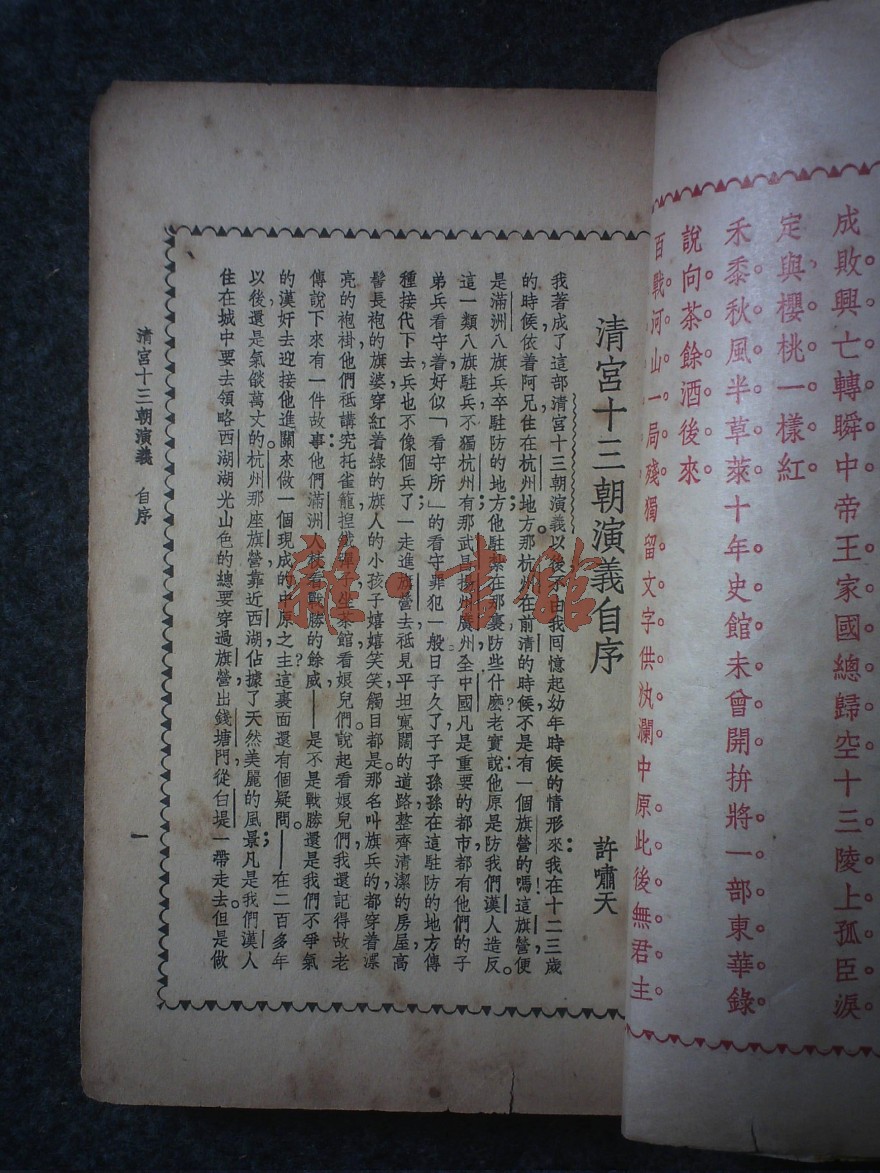 成敗興亡轉瞬中帝王家國總歸空十三陵上孤臣淚
定與櫻桃一樣紅
禾黍秋風半草萊十年史館未曾開拚將一部東華錄
說向茶餘酒後來
百戰河山一局殘獨留文字供汍瀾中原此後無君主
清宮十三朝演義自序
許嘯天
我著成了這部清宮十三朝演義以後不由我囘憶起幼年時候的情形來：我在十二三歲
的時候，依着阿兄住在杭州地方。那杭州在前清的時候，不是有一個旗營的嗎！這旗營便
是滿洲八旗兵卒駐防的地方；他駐紮在那裏，防些什麽？老實說：他原是防我們漢人造反。
這一類八旗駐兵，不獨杭州有，那武昌，揚州，廣州，全中國凡是重要的都市，都有他們的子
弟兵看守着，好似「看守所」的看守罪犯一般；日子久了，子子孫孫在這駐防的地方傳
種接代下去，兵也不像個兵了，一走進旗營去，祗見平坦寬闊的道路，整齊清潔的房屋，高
髻長袍的旗婆，穿紅着綠的旗人的小孩子，嬉嬉笑笑，觸目都是。那名叫旗兵的，都穿着漂
亮的袍褂，他們祗講究托雀籠，捏鐵彈子，坐茶館，看娘兒們。說起看娘兒們，我還記得故老
傳說下來有一件故事：他們滿洲人，杖着戰勝的餘威——是不是戰勝，還是我們不爭氣
的漢奸，去迎接他進關來，做一個現成的中原之主？這裏面還有個疑問。——在二百多年
以後，還是氣燄萬丈的。杭州那座旗營，靠近西湖，佔據了天然美麗的風景；凡是我們漢人
住在城中，要去領略西湖湖光山色的，總要穿過旗營，出錢塘門，從白堤一帶走去。但是做
清宮十三朝演義　自序
一
雜·書館